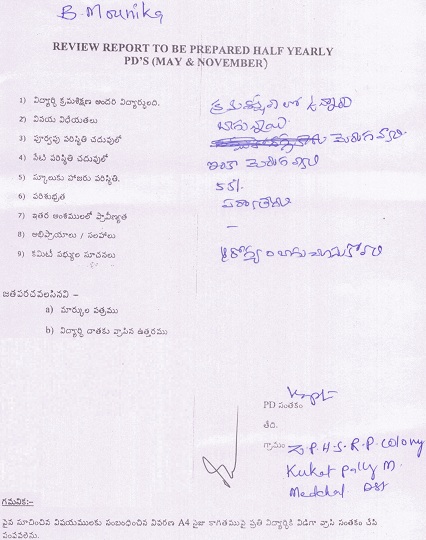 B. Mounika
REVIEW REPORT TO BE PREPARED HALF YEARLY
PD'S (MAY & NOVEMBER)
1) విద్యార్థి క్రమశిక్షణ అందరి విద్యార్థులది. క్రమశిక్షణలో ఉన్నారు
2) వినయ విధేయతలు బాగున్నాయి
3) పూర్వపు పరిస్థితి చదువులో మెరుగవ్వాలి
4) నేటి పరిస్థితి చదువులో ఇంకా మెరుగవ్వాలి
5) స్కూలుకు హాజరు పరిస్థితి.
6) పరిశుభ్రత
7) ఇతర అంశములలో ప్రావీణ్యత –
8) అభిప్రాయాలు / సలహాలు
9) కమిటీ సభ్యుల సూచనలు ఆరోగ్యం బాగు చూచుకోవాలి
జతపరచవలసినవి –
a) మార్కుల పత్రము
b) విద్యార్థి దాతకు వ్రాసిన ఉత్తరము
PD సంతకం
తేది.
గ్రామం Z.P.H.S. R.P. Colony
Kukat pally M.
Medchal Dst
గమనిక:-
పైన సూచించిన విషయములకు సంబంధించిన వివరణ A4 సైజు కాగితముపై ప్రతి విద్యార్థికి విడిగా వ్రాసి సంతకం చేసి
పంపవలెను.